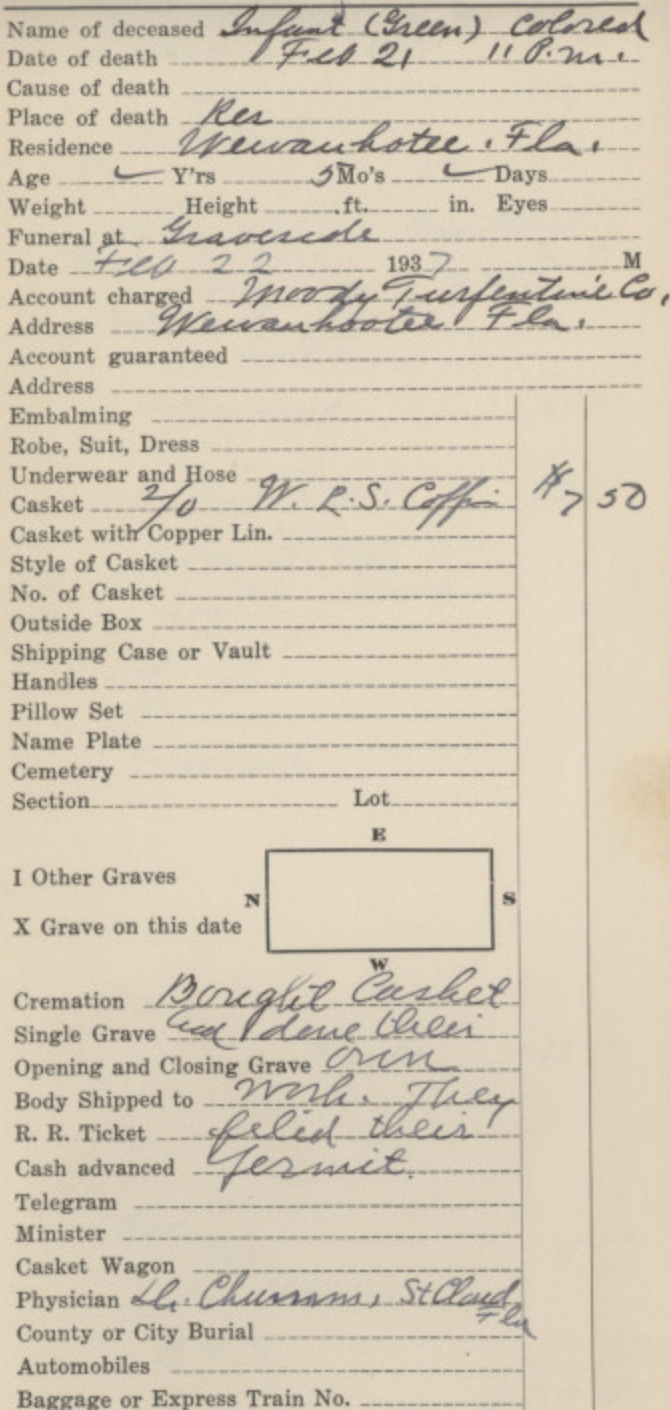 Name of deceased Infant (Green) Colored
Date of death Feb 21 11 P.m.
Cause of death
Place of death Res
Residence Wewanhotee, Fla.
Age ✓ Y'rs 5 Mo's ✓ Days
Weight Height ft. in. Eyes
Funeral at Graveside
Date Feb 22 1937 M
Account charged Moody Turpentine Co.
Address Wewanhootee Fla.
Account guaranteed
Address
Embalming
Robe, Suit, Dress
Underwear and Hose
Casket 2/0 W. L. S. Coffin $7 50
Casket with Copper Lin.
Style of Casket
No. of Casket
Outside Box
Shipping Case or Vault
Handles
Pillow Set
Name Plate
Cemetery
Section Lot
E
I Other Graves
N S
X Grave on this date
W
Cremation Bought Casket
Single Grave and done their
Opening and Closing Grave own
Body Shipped to Work. They
R. R. Ticket filed their
Cash advanced Permit.
Telegram
Minister
Casket Wagon
Physician Dr. St Cloud
Fla
County or City Burial
Automobiles
Baggage or Express Train No.